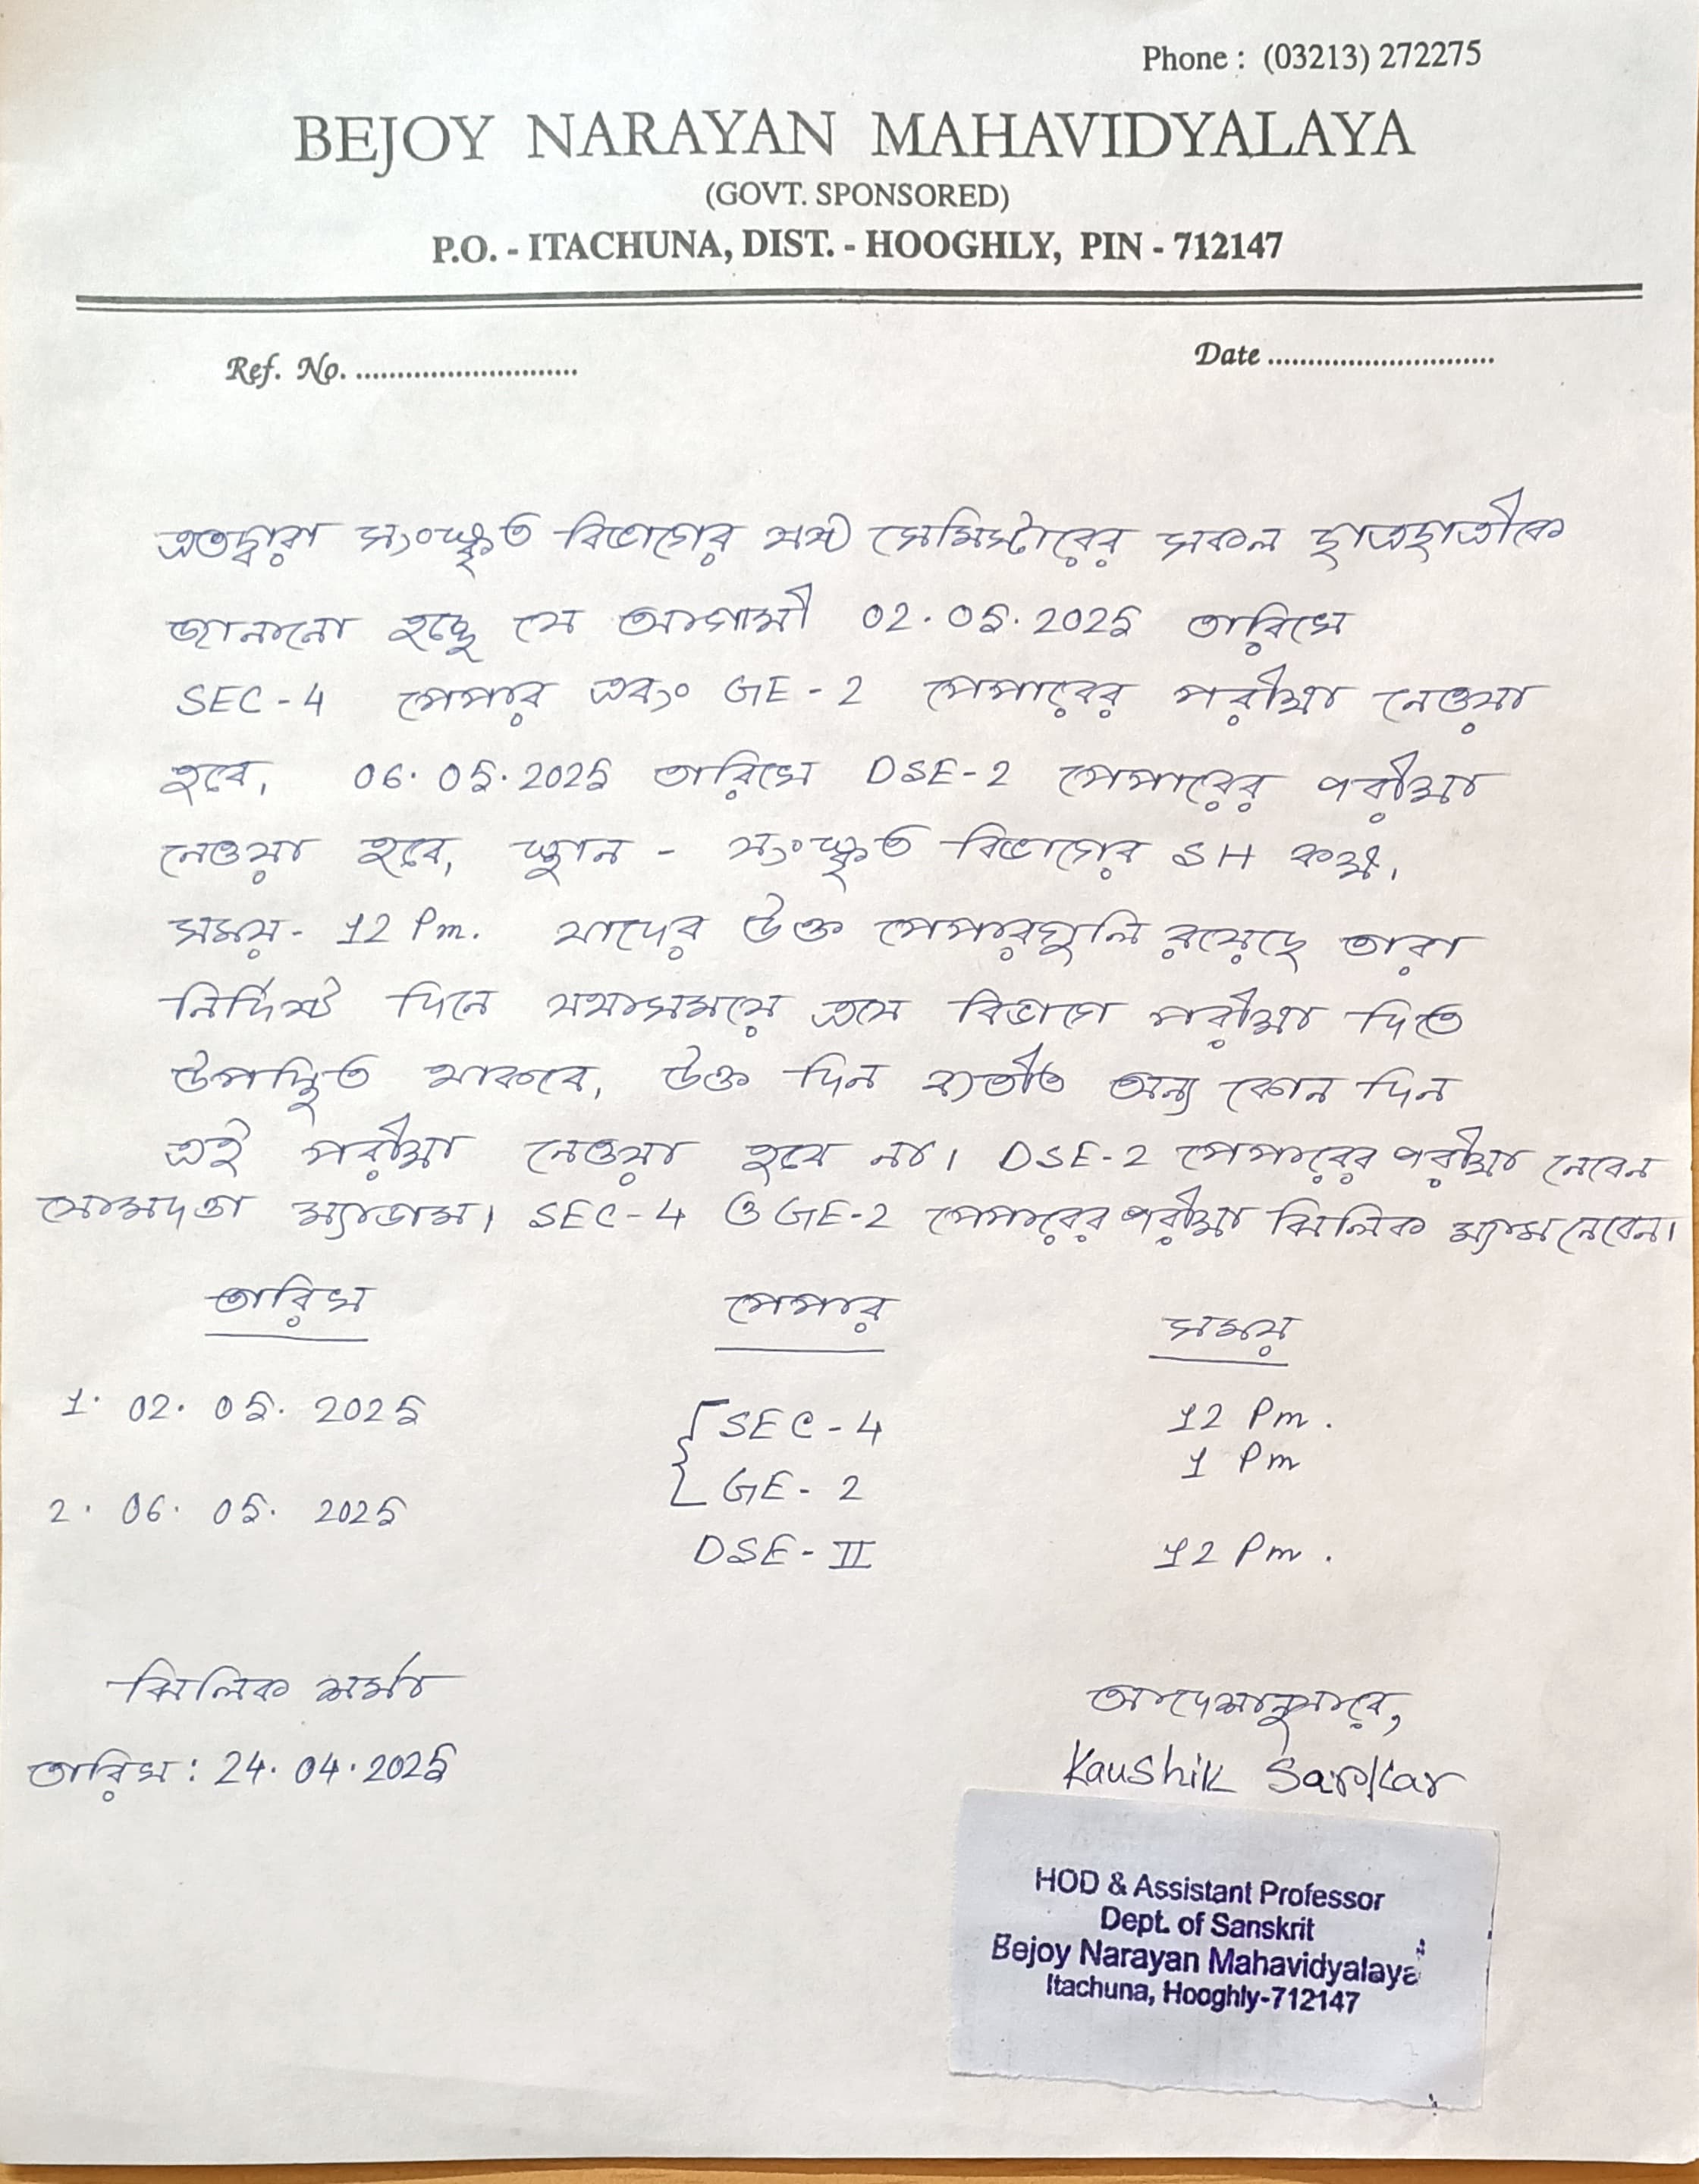 Phone : (03213) 272275
BEJOY NARAYAN MAHAVIDYALAYA
(GOVT. SPONSORED)
P.O. - ITACHUNA, DIST. - HOOGHLY, PIN - 712147
Ref. No. ...........................
Date ............................
এতদ্বারা সংস্কৃত বিভাগের ষষ্ঠ সেমিস্টারের সকল ছাত্রছাত্রীকে
জানানো হচ্ছে যে আগামী 02.05.2025 তারিখে
SEC-4 পেপার এবং GE-2 পেপারের পরীক্ষা নেওয়া
হবে, 06.05.2025 তারিখে DSE-2 পেপারের পরীক্ষা
নেওয়া হবে, স্থান - সংস্কৃত বিভাগের SH কক্ষ,
সময়- 12 Pm. যাদের উক্ত পেপারগুলি রয়েছে তারা
নির্দিষ্ট দিনে যথাসময়ে এসে বিভাগে পরীক্ষা দিতে
উপস্থিত থাকবে, উক্ত দিন ব্যতীত অন্য কোন দিন
এই পরীক্ষা নেওয়া হবে না। DSE-2 পেপারের পরীক্ষা নেবেন
সোমদত্তা ম্যাডাম। SEC-4 ও GE-2 পেপারের পরীক্ষা ঝিলিক ম্যাম নেবেন।
তারিখ পেপার সময়
1. 02. 05. 2025 SEC-4 12 Pm.
GE-2 1 Pm
2. 06. 05. 2025 DSE-II 12 Pm.
ঝিলিক শর্মা
তারিখ : 24.04.2025
আদেশানুসারে,
Kaushik Sarkar
HOD & Assistant Professor
Dept. of Sanskrit
Bejoy Narayan Mahavidyalaya
Itachuna, Hooghly-712147